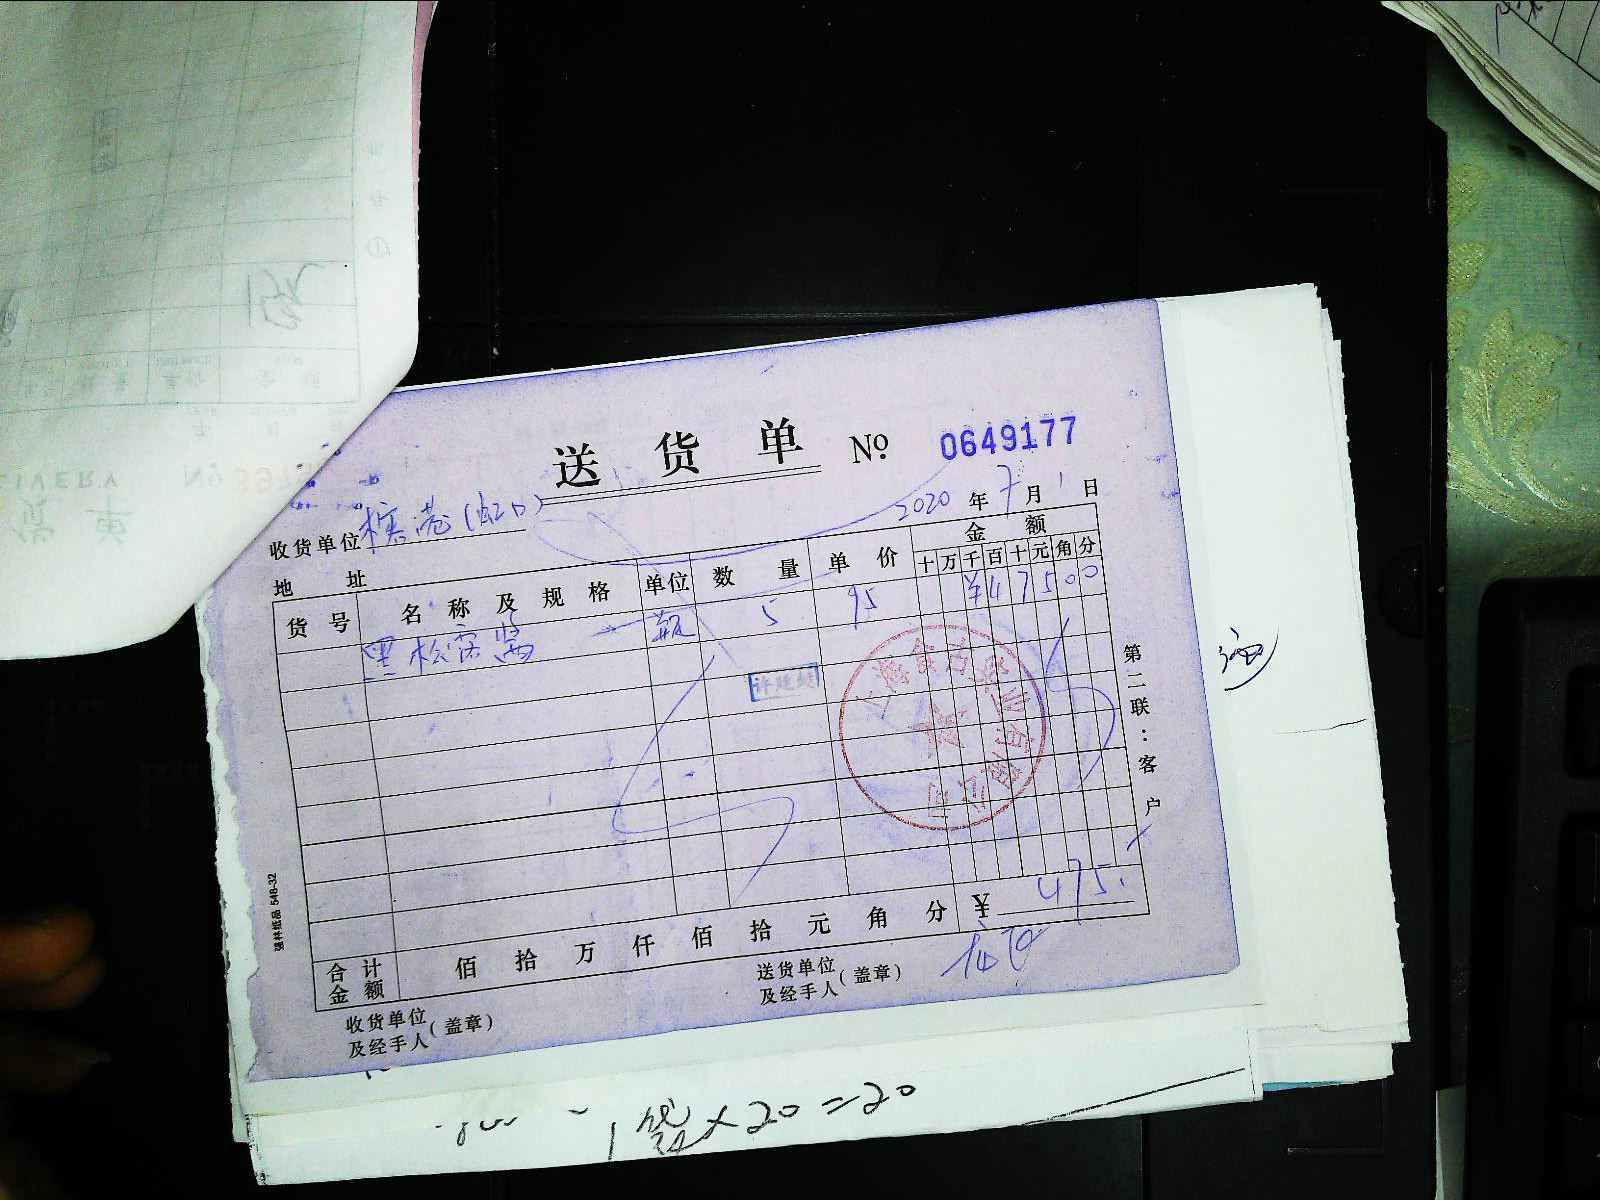 送货单 № 0649177
2020 年 7 月 1 日
收货单位 (虹口)
地 址
货号 名称及规格 单位 数量 单价 金额
十 万 千 百 十 元 角 分
黑松露酱 瓶 5 95 ¥ 4 7 5 0 0
第二联：客户
合计金额 佰 拾 万 仟 佰 拾 元 角 分 ¥ 475.
收货单位及经手人(盖章)
送货单位及经手人(盖章)
548-32
1袋×20=20